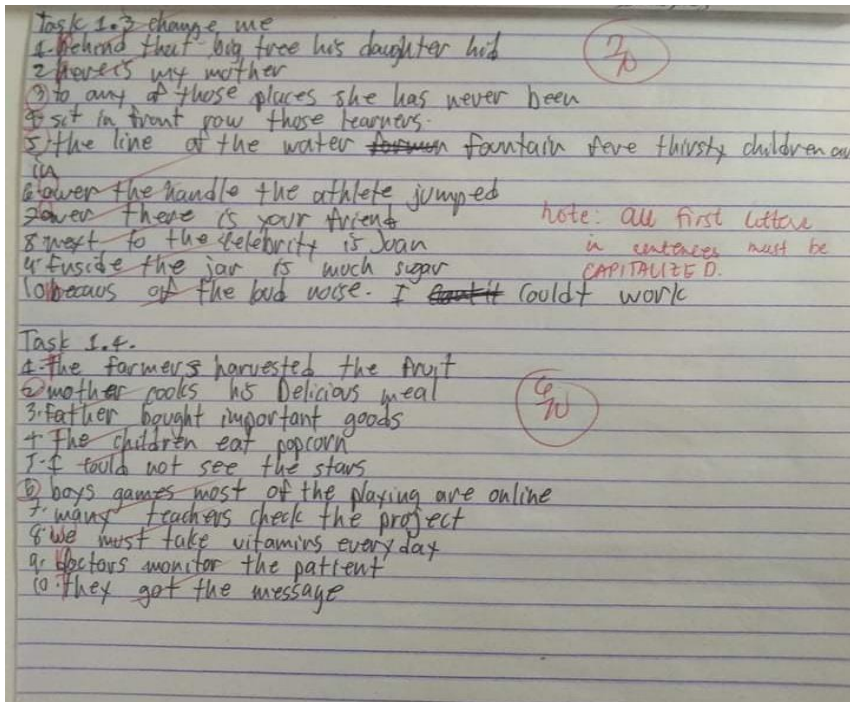 Task 1.3 change me
1. behind that big tree his daughter hid
7/10
2 here is my mother
3 to any of those places she has never been
4 sit in front row those learners.
5 the line of the water fountain five thirsty children are
in
6 over the handle the athlete jumped
7 over there is your friend
note: All first letters
8 next to the celebrity is Joan
in sentences must be
9. Inside the jar is much sugar
CAPITALIZED.
10 becaus of the loud noise. I couldt work
Task 1.4.
1. The farmers harvested the fruit
2 mother cooks his Delicious meal
6/10
3. father bought important goods
4. The children eat popcorn
5. I could not see the stars
6 boys games most of the playing are online
7. many teachers check the project
8. we must take vitamins everyday
9. doctors monitor the patient
10. they got the message